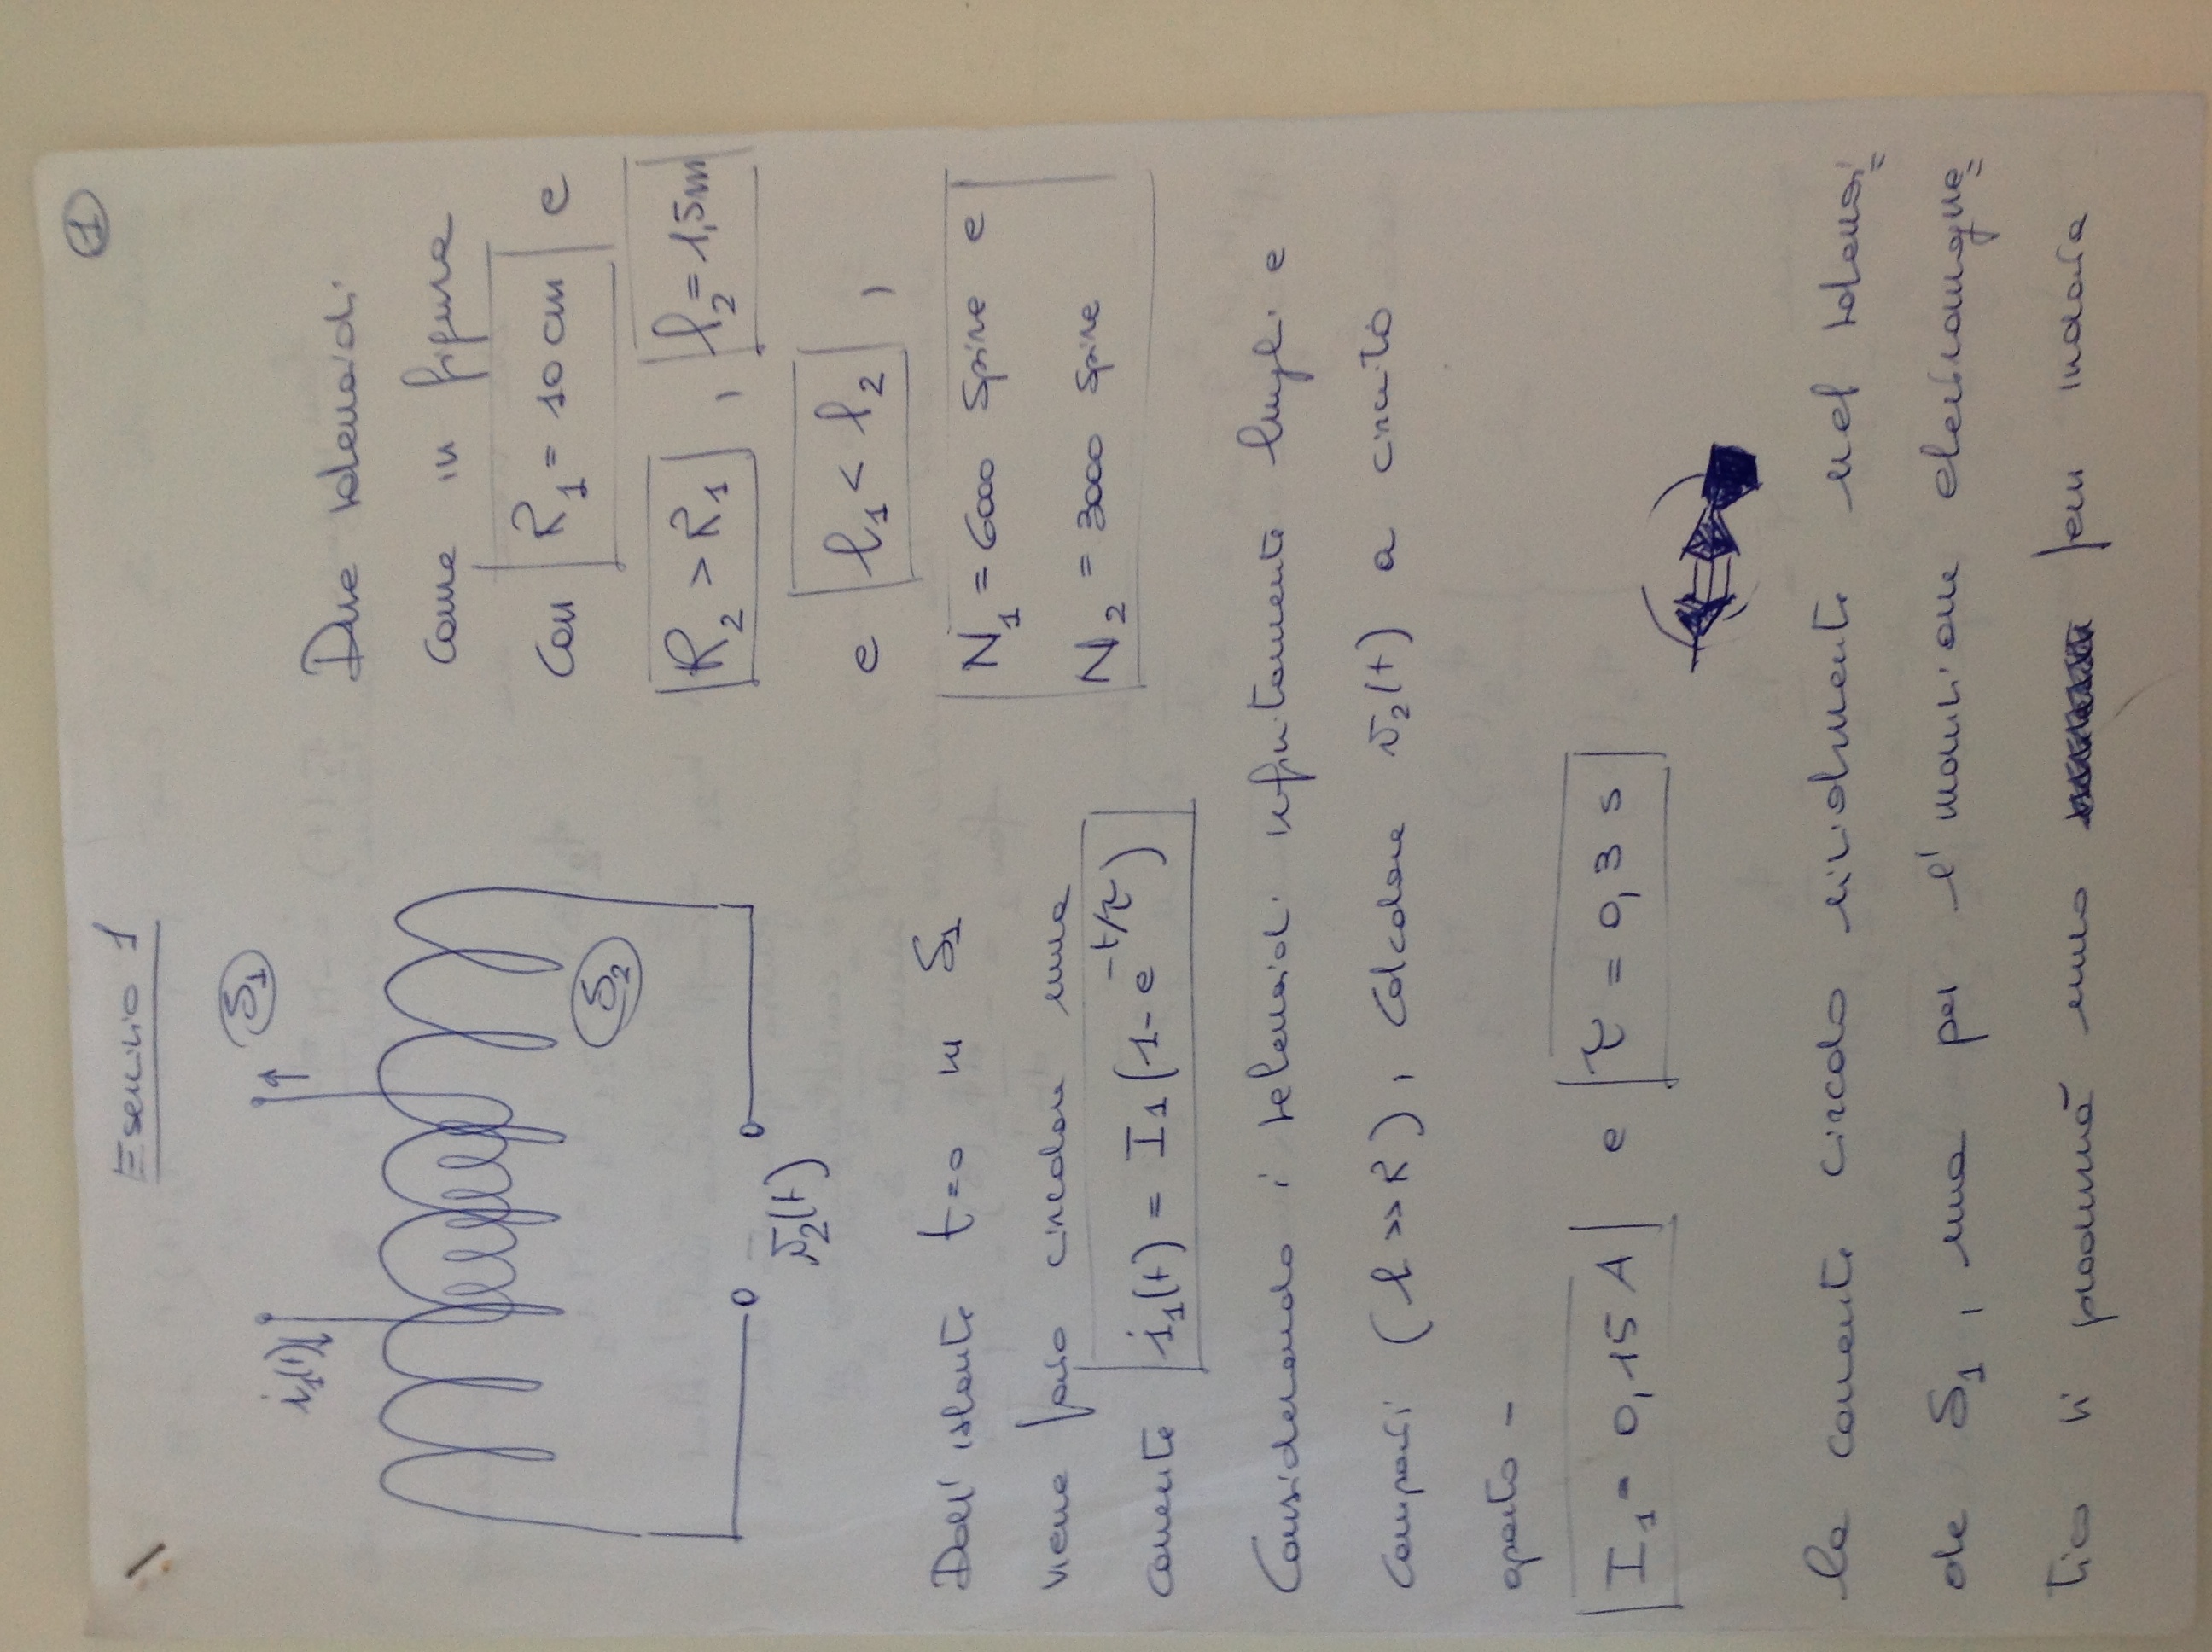 1
Esercizio 1
S1
i1(t)
Due solenoidi
come in figura
con R1 = 10 cm e
S2
R2 > R1 , l2 = 1,5m
v2(t)
e l1 < l2 ,
Dall' istante t=0 in S1
N1 = 6000 spire e
viene fatta circolare una
N2 = 3000 spire
corrente i1(t) = I1 (1 - e^-t/τ)
Considerando i solenoidi infinitamente lunghi e
compatti (l >> R), calcolare v2(t) a circuito
aperto -
I1 = 0,15 A e τ = 0,3 s
la corrente circola inizialmente nel solenoi=
de S1 , ma per l'induzione elettromagne=
tica si produrrà una fem indotta